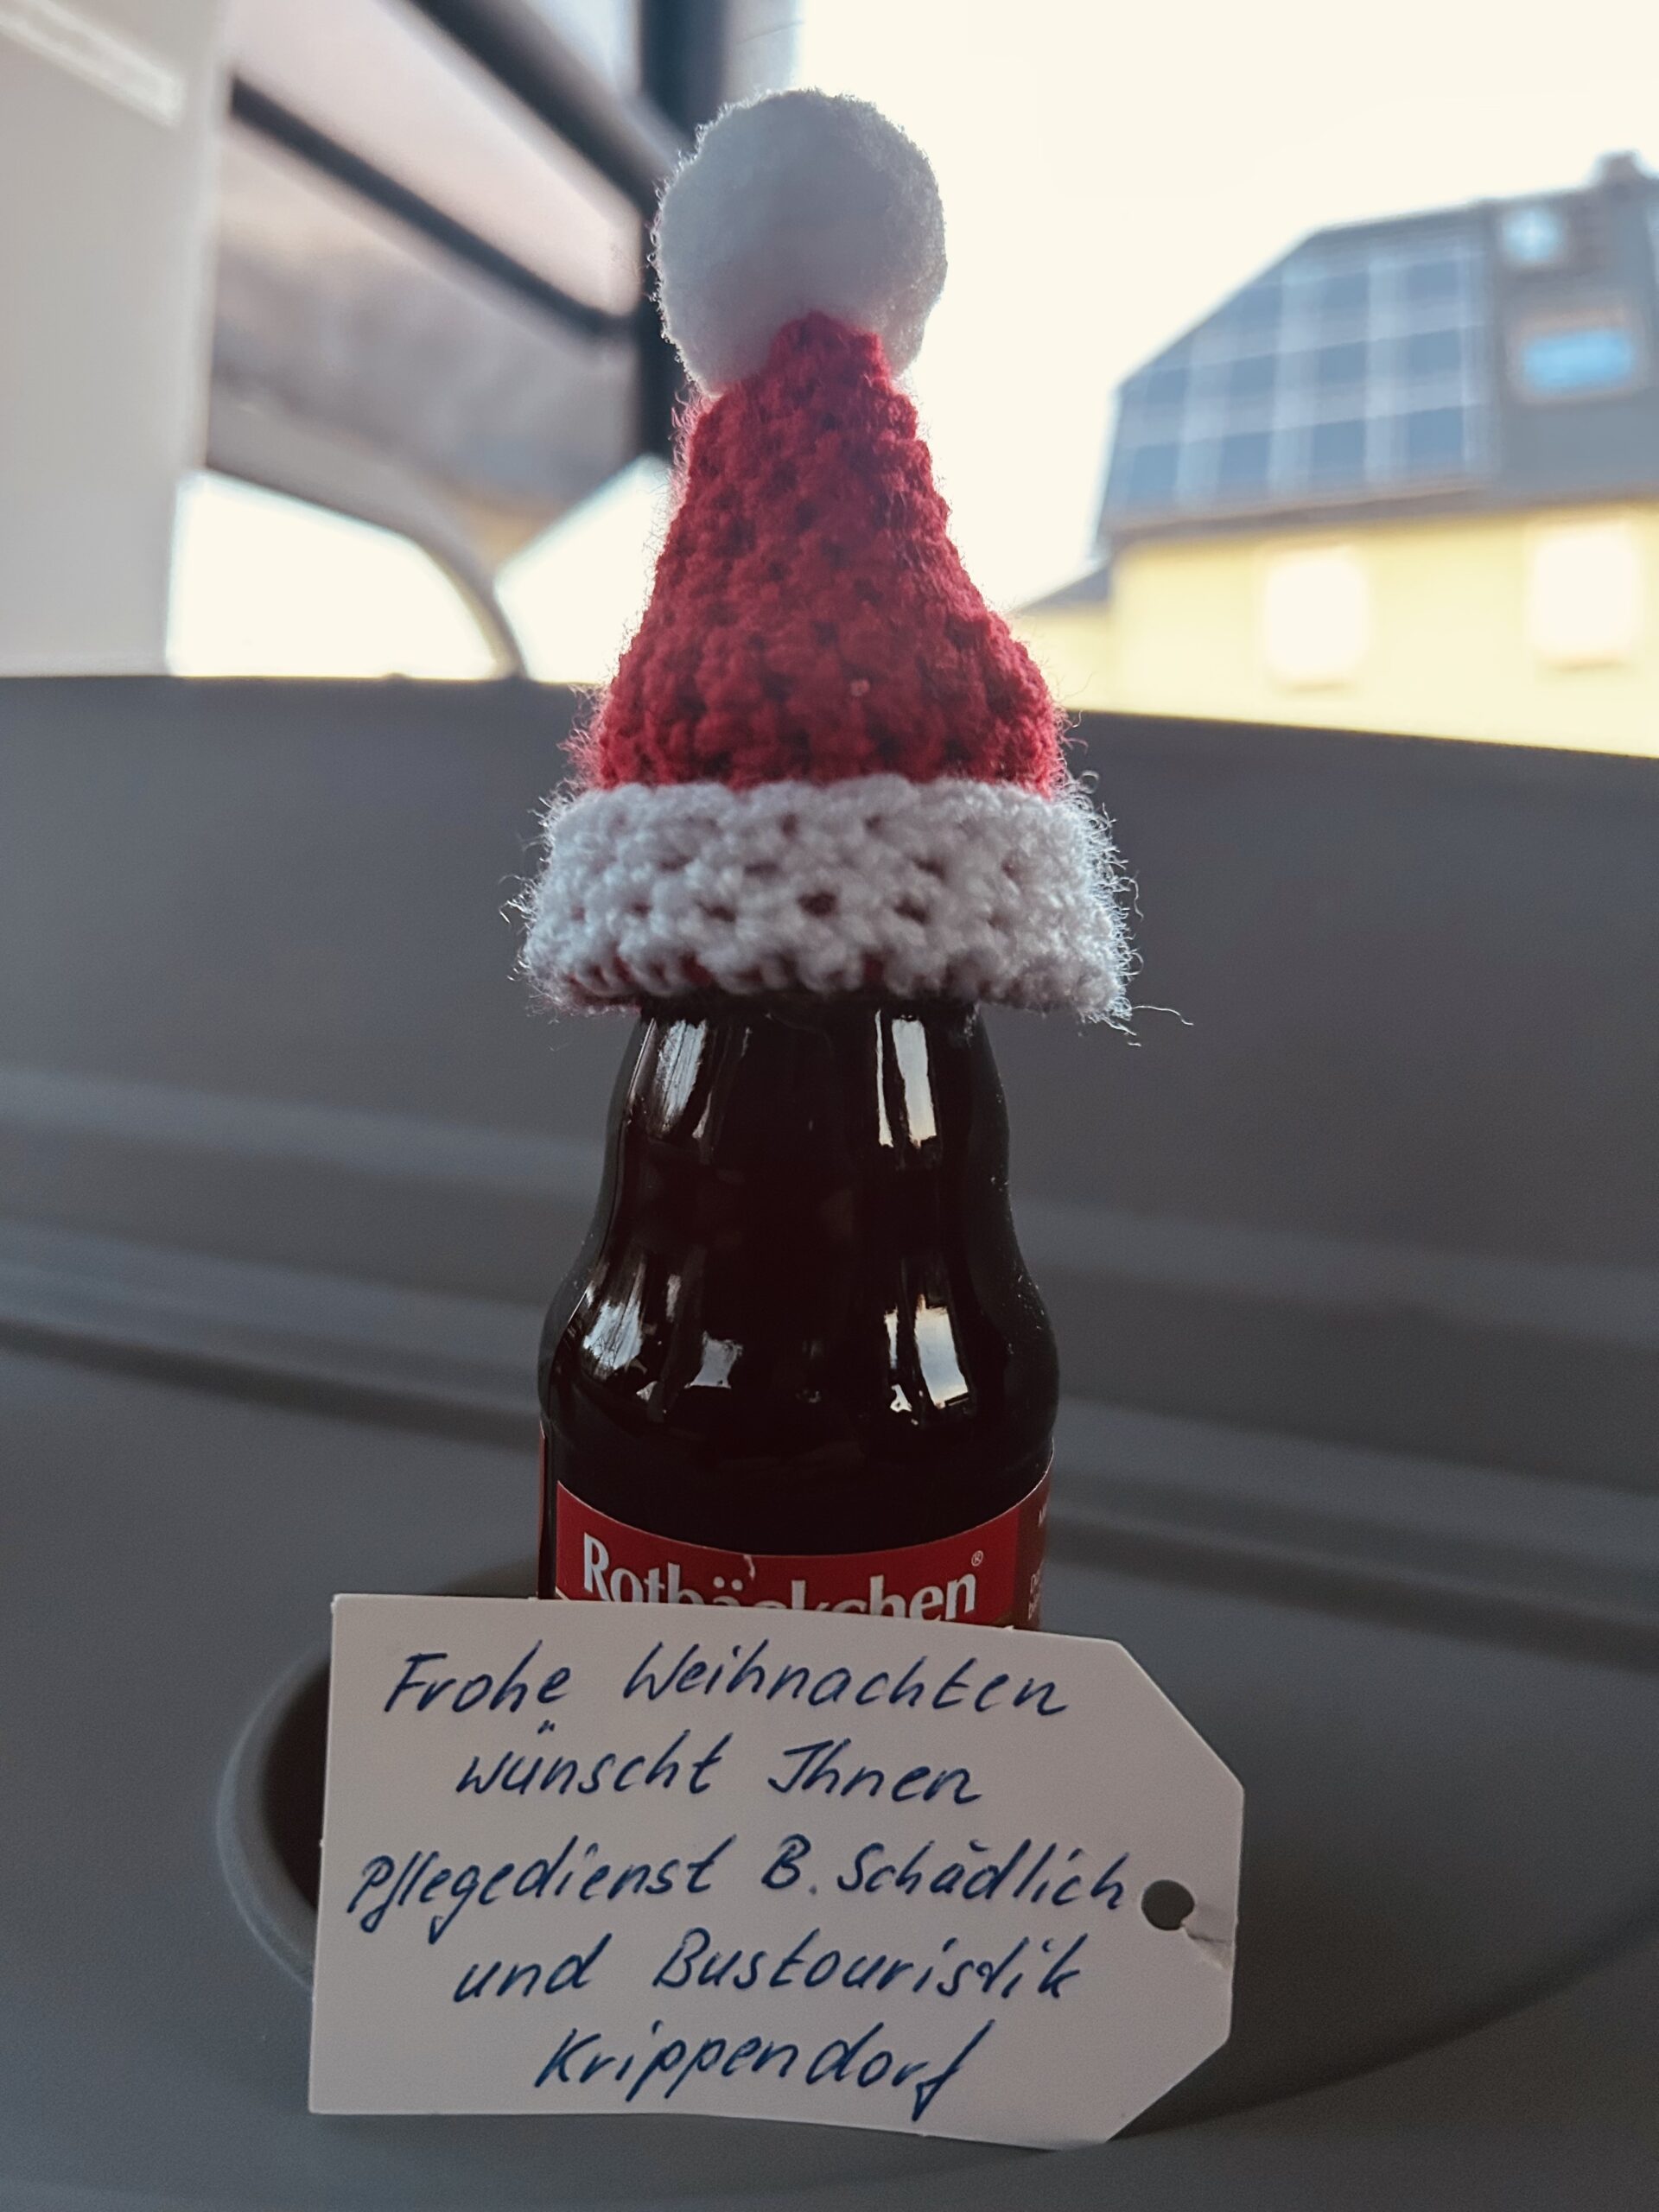 Rotbäckchen®
Frohe Weihnachten
wünscht Ihnen
Pflegedienst B. Schädlich
und Bustouristik
Krippendorf